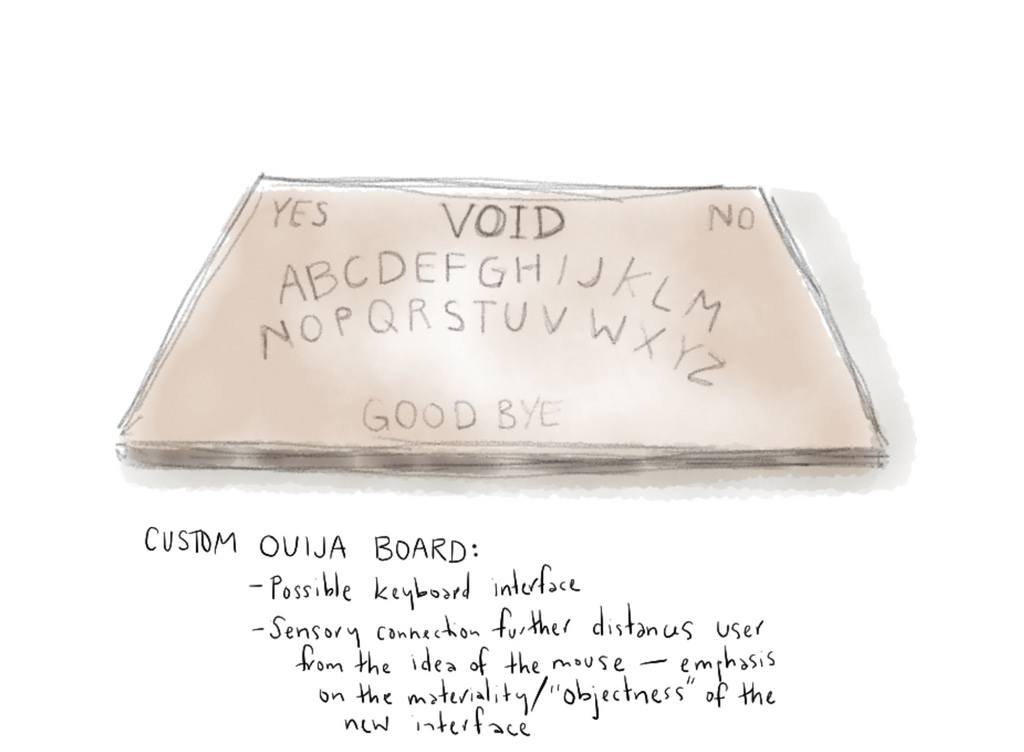 YES VOID NO
ABCDEFGHIJKLM
NOPQRSTUVWXYZ
GOOD BYE
CUSTOM OUIJA BOARD:
- Possible keyboard interface
- Sensory connection further distances user
from the idea of the mouse — emphasis
on the materiality/"objectness" of the
new interface